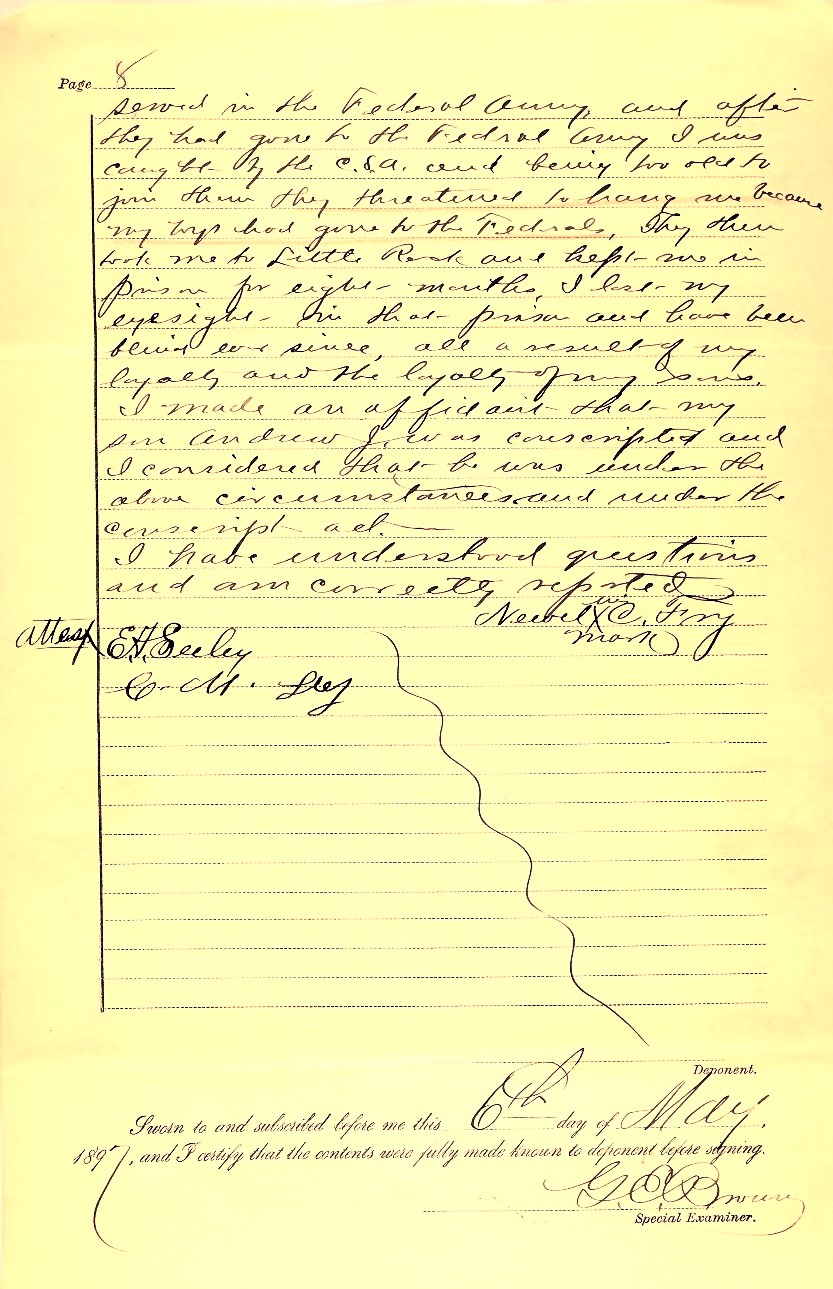 Page 8
served in the Federal Army, and after
they had gone to the Fedral Army I was
caught by the C.S.A. and being too old to
join them they threatened to hang me because
my boys had gone to the Federals, They then
took me to Little Rock and kept me in
prison for eight months, I lost my
eyesight in that prison and have been
blind ever since, all a result of my
loyalty and the loyalty of my sons.
I made an affidavit that my
son Andrew J. was conscripted and
I considered that he was under the
above circumstances and under the
conscript act.
I have understood questions
and am correctly reported
his
Newel X C. Fry
mark
attest
E.H. Seeley
C. M.
Deponent.
Sworn to and subscribed before me this 6th day of May,
1897, and I certify that the contents were fully made known to deponent before signing.
G. E. Brown
Special Examiner.